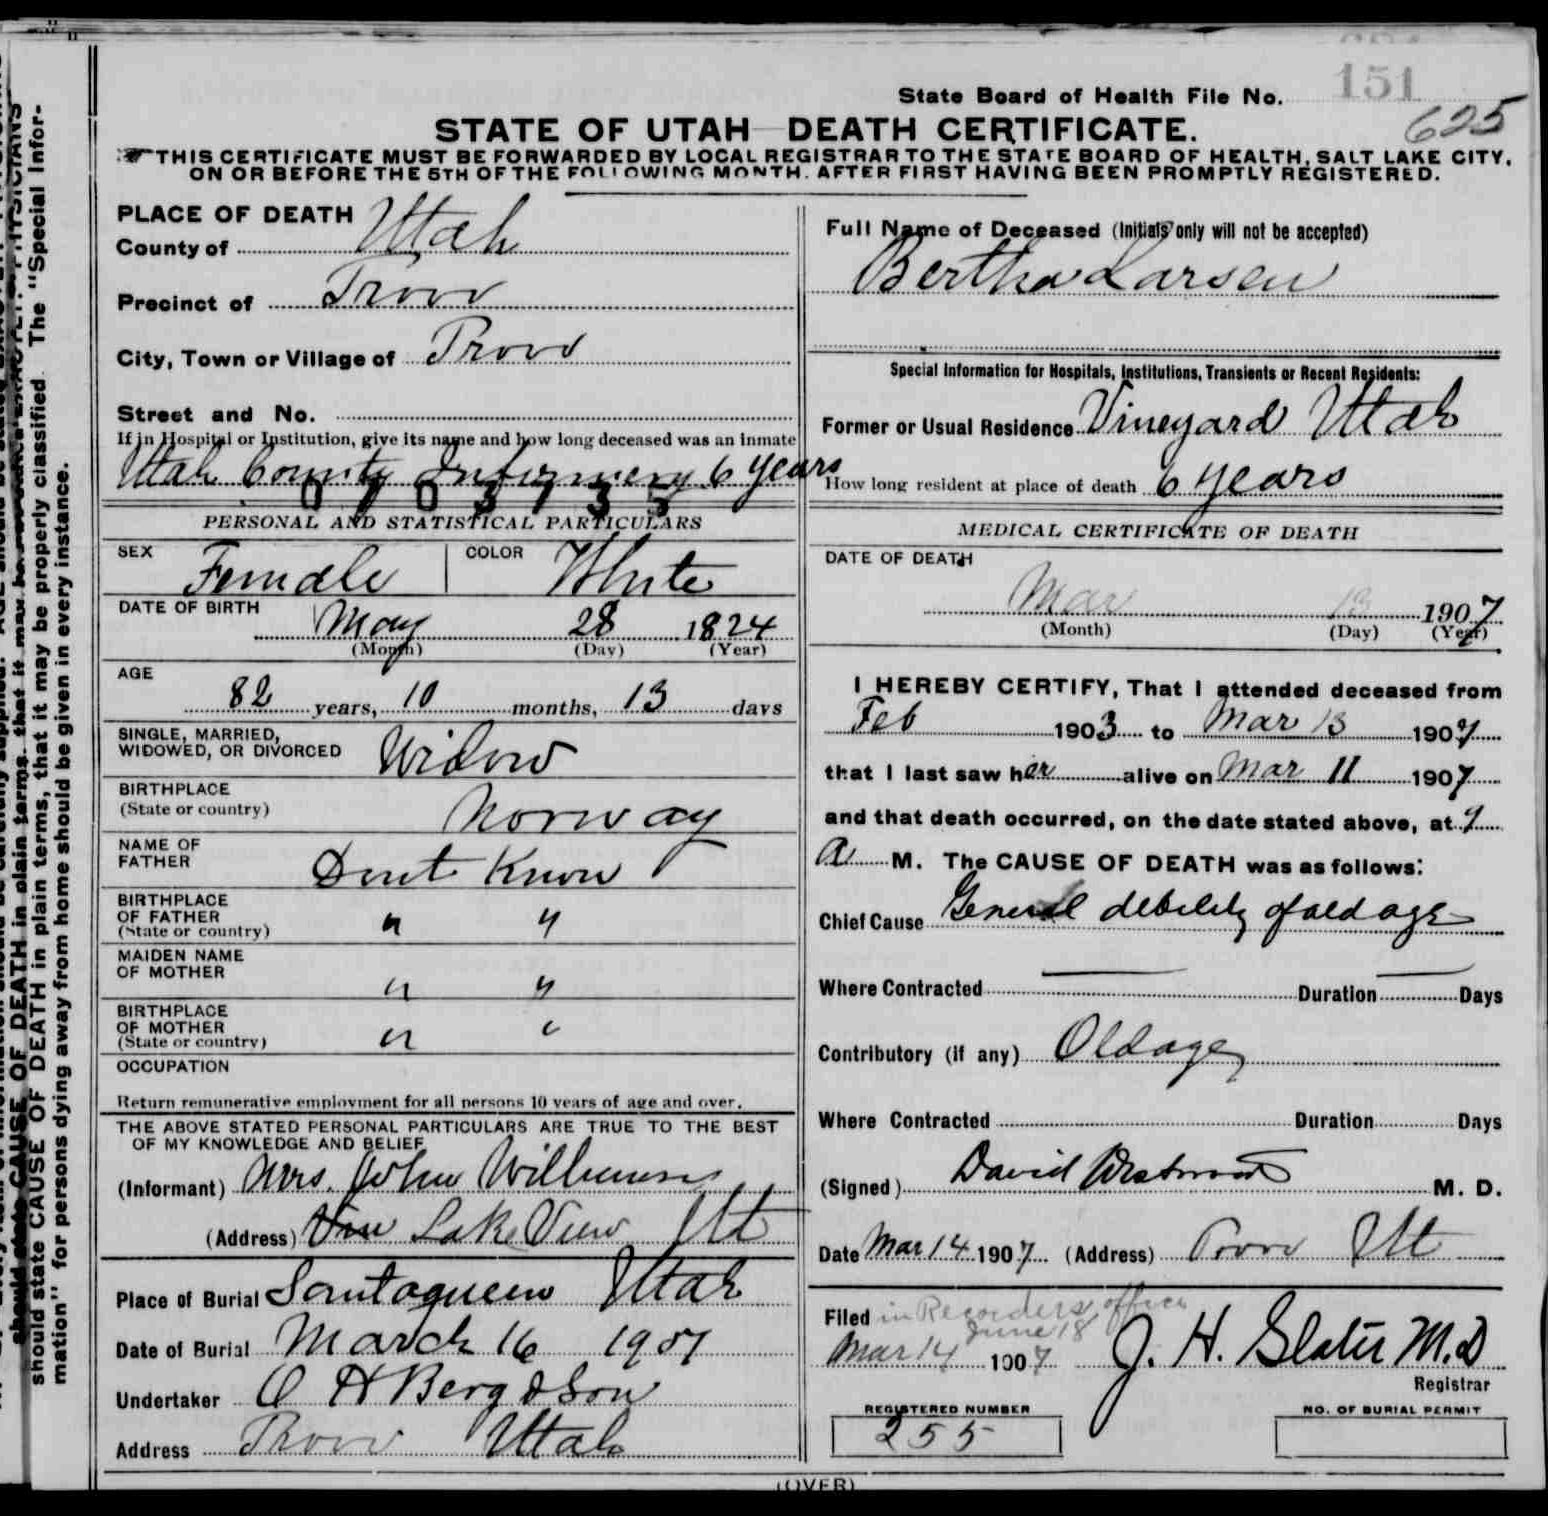 151
State Board of Health File No.
625
STATE OF UTAH DEATH CERTIFICATE.
THIS CERTIFICATE MUST BE FORWARDED BY LOCAL REGISTRAR TO THE STATE BOARD OF HEALTH, SALT LAKE CITY,
ON OR BEFORE THE 5TH OF THE FOLLOWING MONTH, AFTER FIRST HAVING BEEN PROMPTLY REGISTERED.
PLACE OF DEATH
County of Utah
Precinct of Provo
City, Town or Village of Provo
Street and No.
If in Hospital or Institution, give its name and how long deceased was an inmate
Utah County Infirmery 6 years
0703735
PERSONAL AND STATISTICAL PARTICULARS
SEX Female COLOR White
DATE OF BIRTH
May 28 1824
(Month) (Day) (Year)
AGE
82 years, 10 months, 13 days
SINGLE, MARRIED,
WIDOWED, OR DIVORCED Widow
BIRTHPLACE
(State or country) Norway
NAME OF
FATHER Dont Know
BIRTHPLACE
OF FATHER " "
(State or country)
MAIDEN NAME
OF MOTHER " "
BIRTHPLACE
OF MOTHER " "
(State or country)
OCCUPATION
Return remunerative employment for all persons 10 years of age and over.
THE ABOVE STATED PERSONAL PARTICULARS ARE TRUE TO THE BEST
OF MY KNOWLEDGE AND BELIEF
(Informant) Mrs. John
(Address) Vin Lake View Ut
Place of Burial Santaqueen Utah
Date of Burial March 16 1907
Undertaker O H Berg & Son
Address Provo Utah
Full Name of Deceased (Initials only will not be accepted)
Bertha Larsen
Special Information for Hospitals, Institutions, Transients or Recent Residents:
Former or Usual Residence Vineyard Utah
How long resident at place of death 6 years
MEDICAL CERTIFICATE OF DEATH
DATE OF DEATH
Mar 13 1907
(Month) (Day) (Year)
I HEREBY CERTIFY, That I attended deceased from
Feb 1903 to Mar 13 1907
that I last saw her alive on Mar 11 1907
and that death occurred, on the date stated above, at 9
a M. The CAUSE OF DEATH was as follows:
Chief Cause General debility of old age
Where Contracted Duration Days
Contributory (if any) Old age
Where Contracted Duration Days
(Signed) David Westwood M. D.
Date Mar 14 1907 (Address) Provo Ut
Filed in Recorders office
June 18
Mar 14 1907 J. H. Slater M.D
Registrar
REGISTERED NUMBER
255
NO. OF BURIAL PERMIT
(OVER)
should state CAUSE OF DEATH in plain terms, that it may be properly classified. The "Special Infor-
mation" for persons dying away from home should be given in every instance.